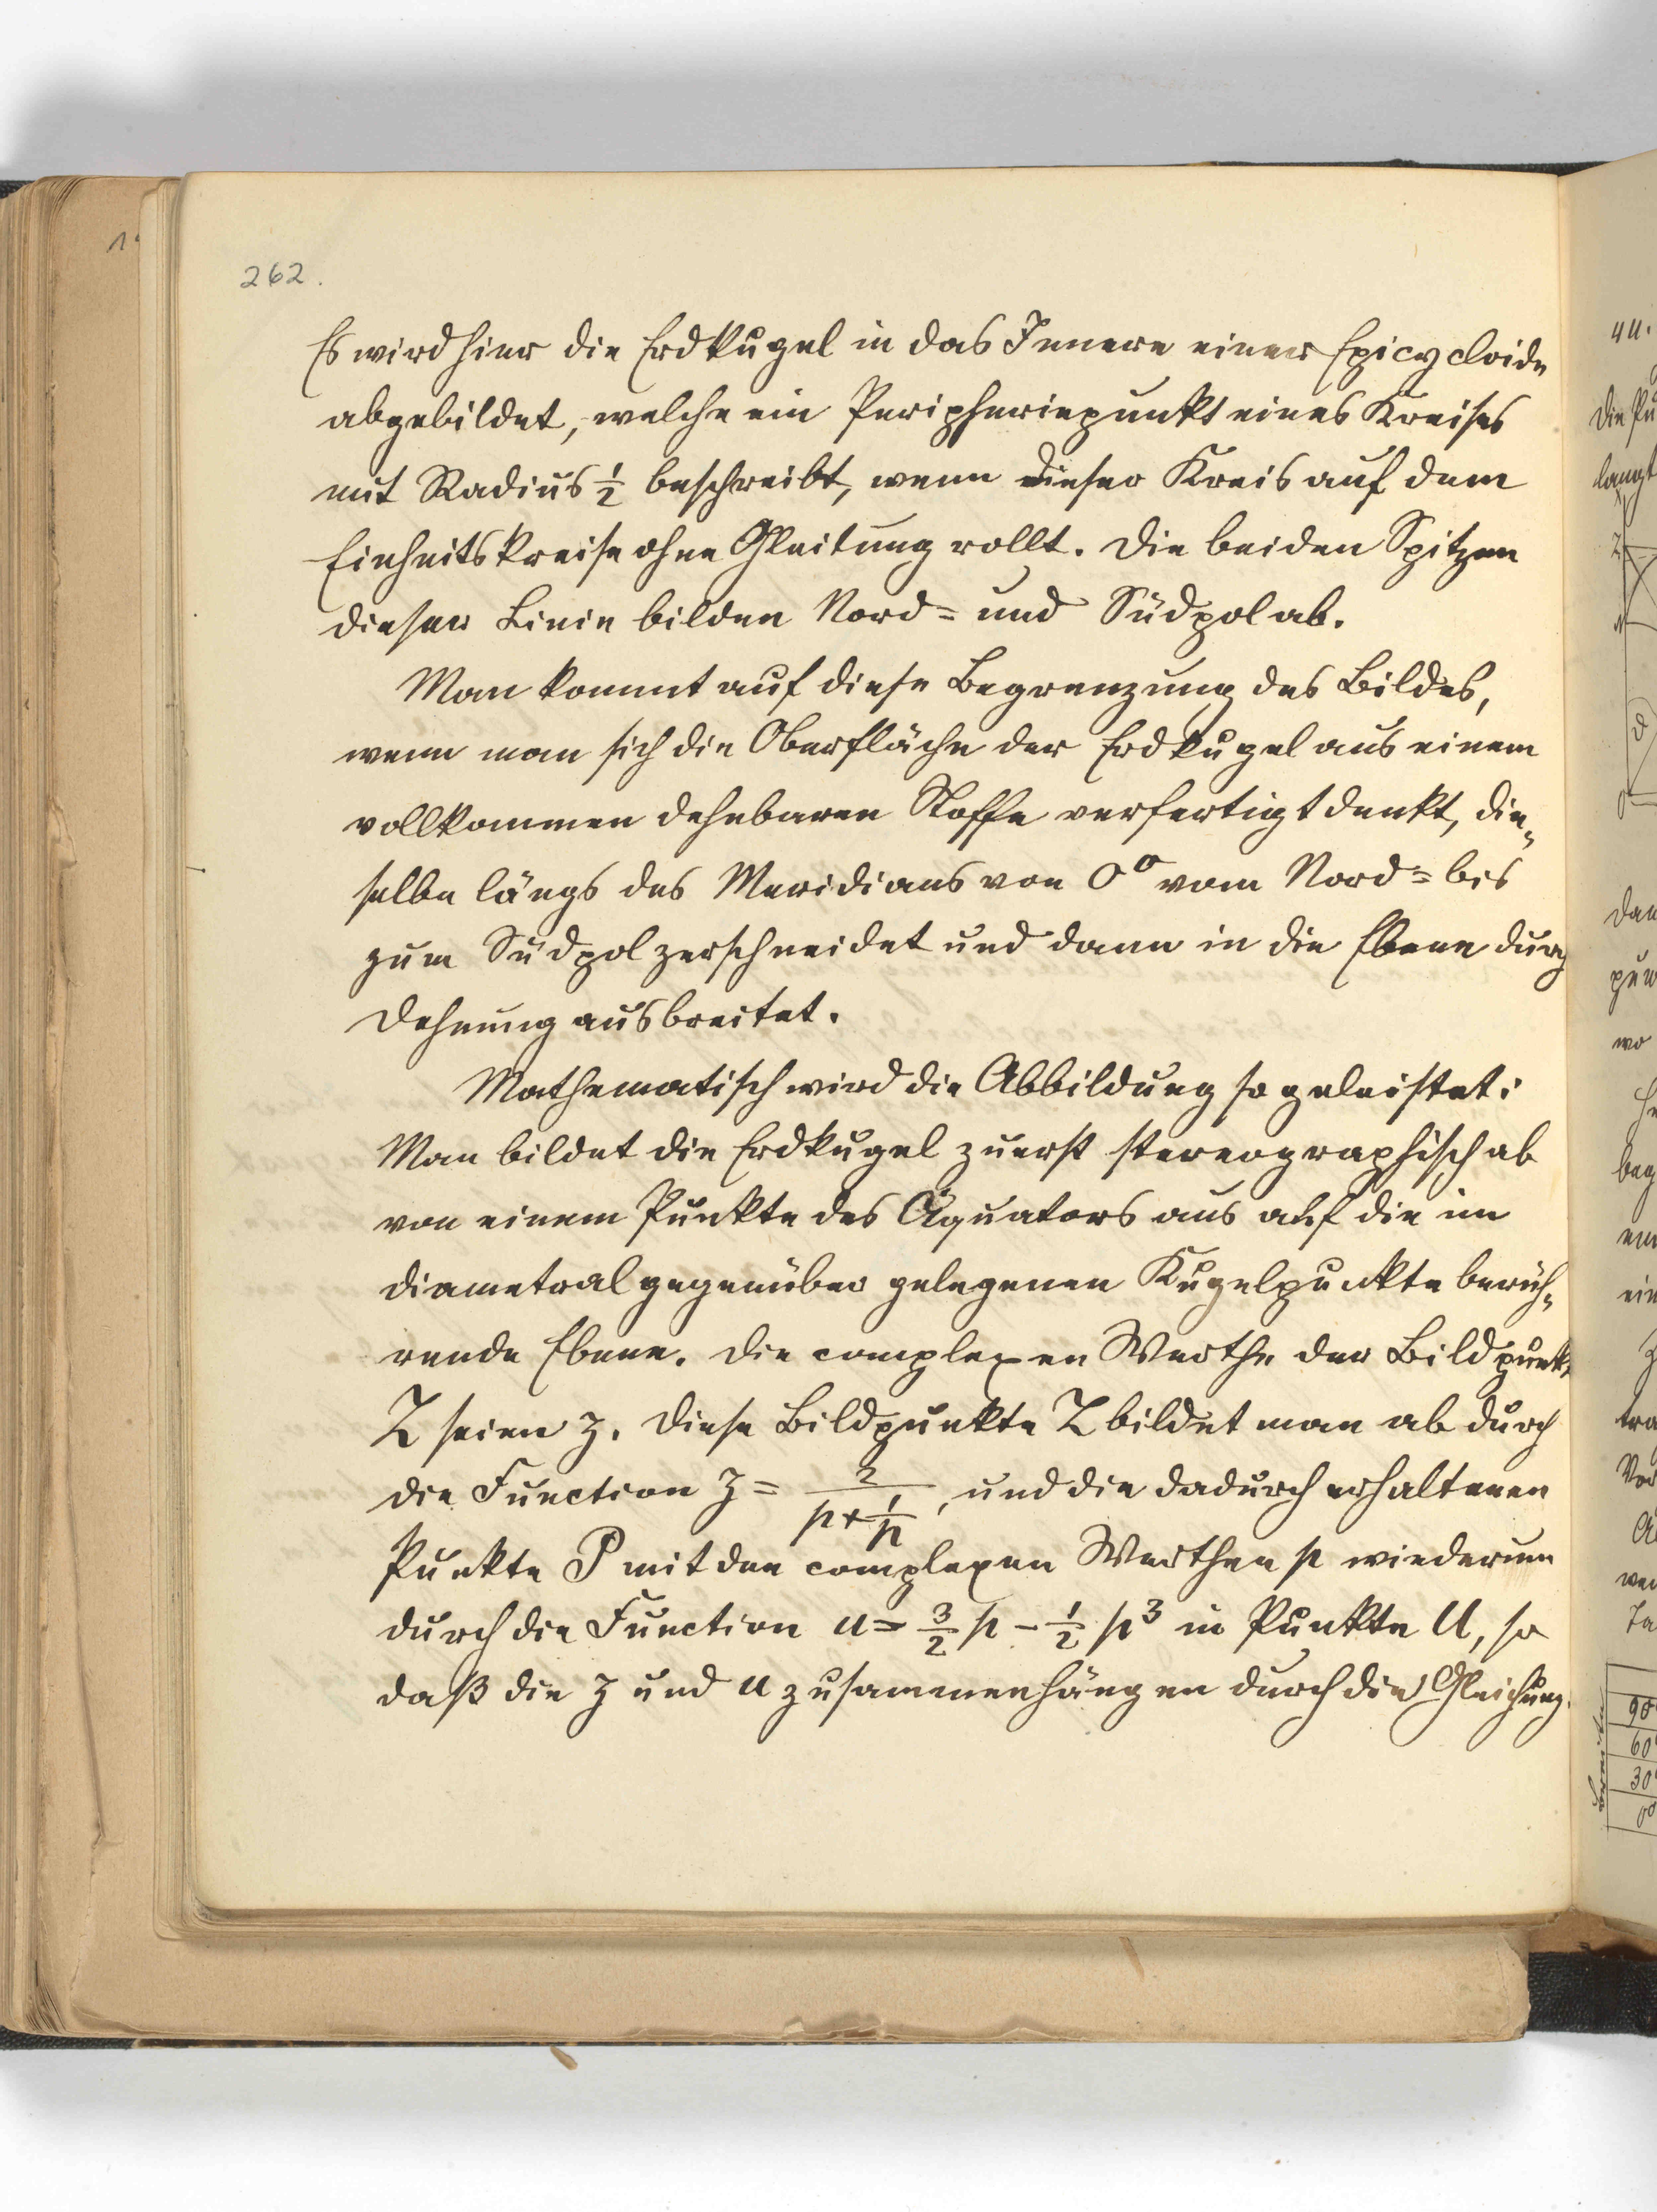 262.
Es wird hier die Erdkugel in das Innere einer Epicycloide
abgebildet, welche ein Peripheriepunkt eines Kreises
mit Radius ½ beschreibt, wenn dieser Kreis auf dem
Einheitskreise ohne Gleitung rollt. Die beiden Spitzen
dieser Linie bilden Nord= und Südpol ab.
Man kommt auf diese Begrenzung des Bildes,
wenn man sich die Oberfläche der Erdkugel aus einem
vollkommen dehnbaren Stoffe verfertigt denkt, die=
selbe längs des Meridians von 0° vom Nord= bis
zum Südpol zerschneidet und dann in die Ebene durch
Dehnung ausbreitet.
Mathematisch wird die Abbildung so geleistet:
Man bildet die Erdkugel zuerst stereographisch ab
von einem Punkte des Äquators aus auf die im
diametral gegenüber gelegenen Kugelpunkte berüh=
rende Ebene. Die complexen Werthe der Bildpunkte
Z seien z. Diese Bildpunkte Z bildet man ab durch
die Function z = 2/(p+1/p), und die dadurch erhaltenen
Punkte P mit den complexen Werthen p wiederum
durch die Function u = 3/2 p - 1/2 p³ in Punkte U, so
daß die z und u zusammenhängen durch die Gleichung.